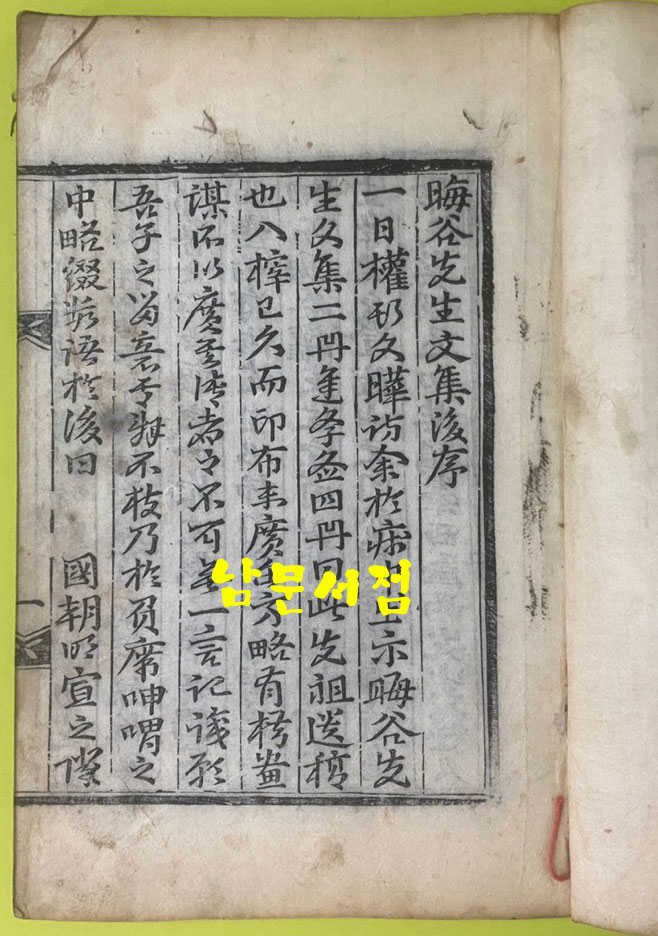 晦谷先生文集後序
一日權斯文曄訪余於病中出示晦谷先
生文集二冊逢年金四冊曰此先祖遺稿
也入梓已久而印布未廣今方略有
謀所以廣其傳者之不可無一言記識願
吾子之留意焉辭不枝乃於負席呻喟之
中略綴數語於後曰 國朝明宣之際
남문서점